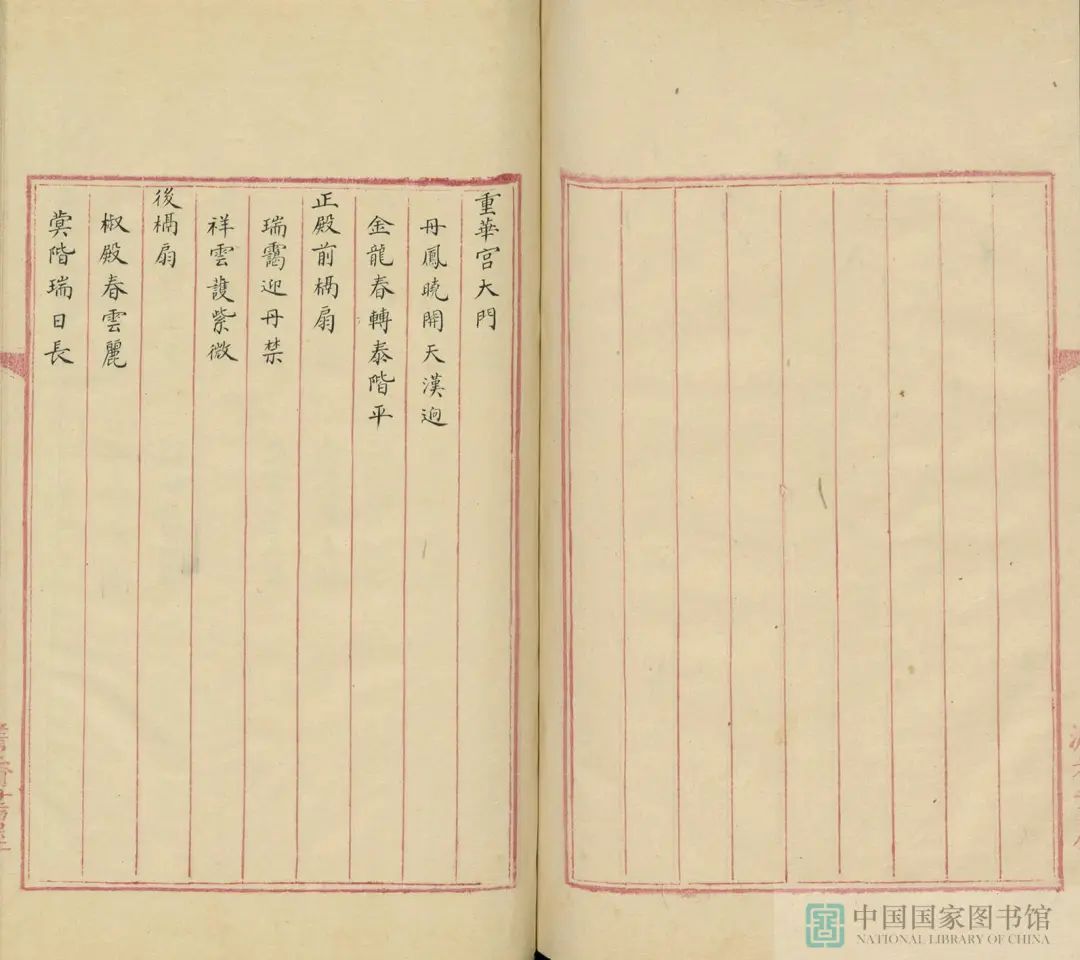 重華宮大門
丹鳳曉開天漢逈
金龍春轉泰階平
正殿前槅扇
瑞靄迎丹禁
祥雲護紫微
後槅扇
椒殿春雲麗
蓂階瑞日長
中国国家图书馆
NATIONAL LIBRARY OF CHINA